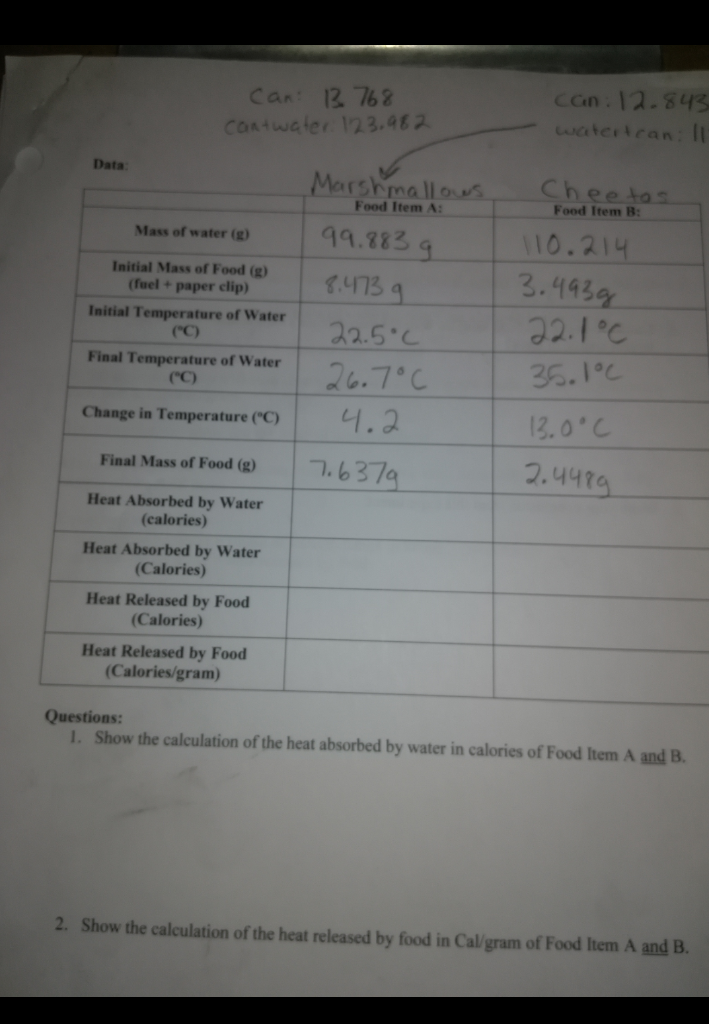 Can: 13.768 can: 12.843
can+water: 123.982 water+can: 11
Data:
Marshmallows Cheetos
Food Item A: Food Item B:
Mass of water (g) 99.883 g 110.214
Initial Mass of Food (g)
(fuel + paper clip) 8.473 g 3.493g
Initial Temperature of Water
(ºC) 22.5°C 22.1°C
Final Temperature of Water
(ºC) 26.7°C 35.1°C
Change in Temperature (ºC) 4.2 13.0°C
Final Mass of Food (g) 7.637g 2.448g
Heat Absorbed by Water
(calories)
Heat Absorbed by Water
(Calories)
Heat Released by Food
(Calories)
Heat Released by Food
(Calories/gram)
Questions:
1. Show the calculation of the heat absorbed by water in calories of Food Item A and B.
2. Show the calculation of the heat released by food in Cal/gram of Food Item A and B.